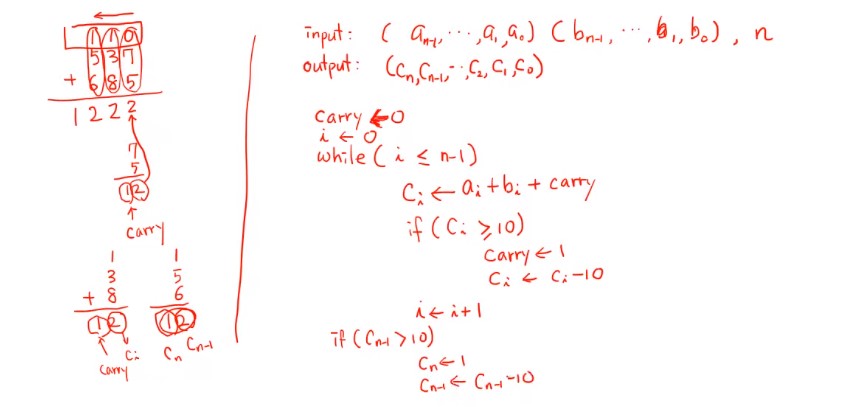 1 1 0
5 3 7
+ 6 8 5
1 2 2 2
7
5
1 2
carry
1
3
+ 8
1 2
carry
Ci
1
5
6
1 2
Cn Cn-1
input: ( an-1, ..., a1, a0) ( bn-1, ..., b1, b0) , n
output: (Cn, Cn-1, ..., C2, C1, C0)
carry ← 0
i ← 0
while ( i ≤ n-1)
Ci ← ai + bi + carry
if ( Ci ≥ 10)
carry ← 1
Ci ← Ci -10
i ← i+1
if ( Cn-1 > 10)
Cn ← 1
Cn-1 ← Cn-1 -10